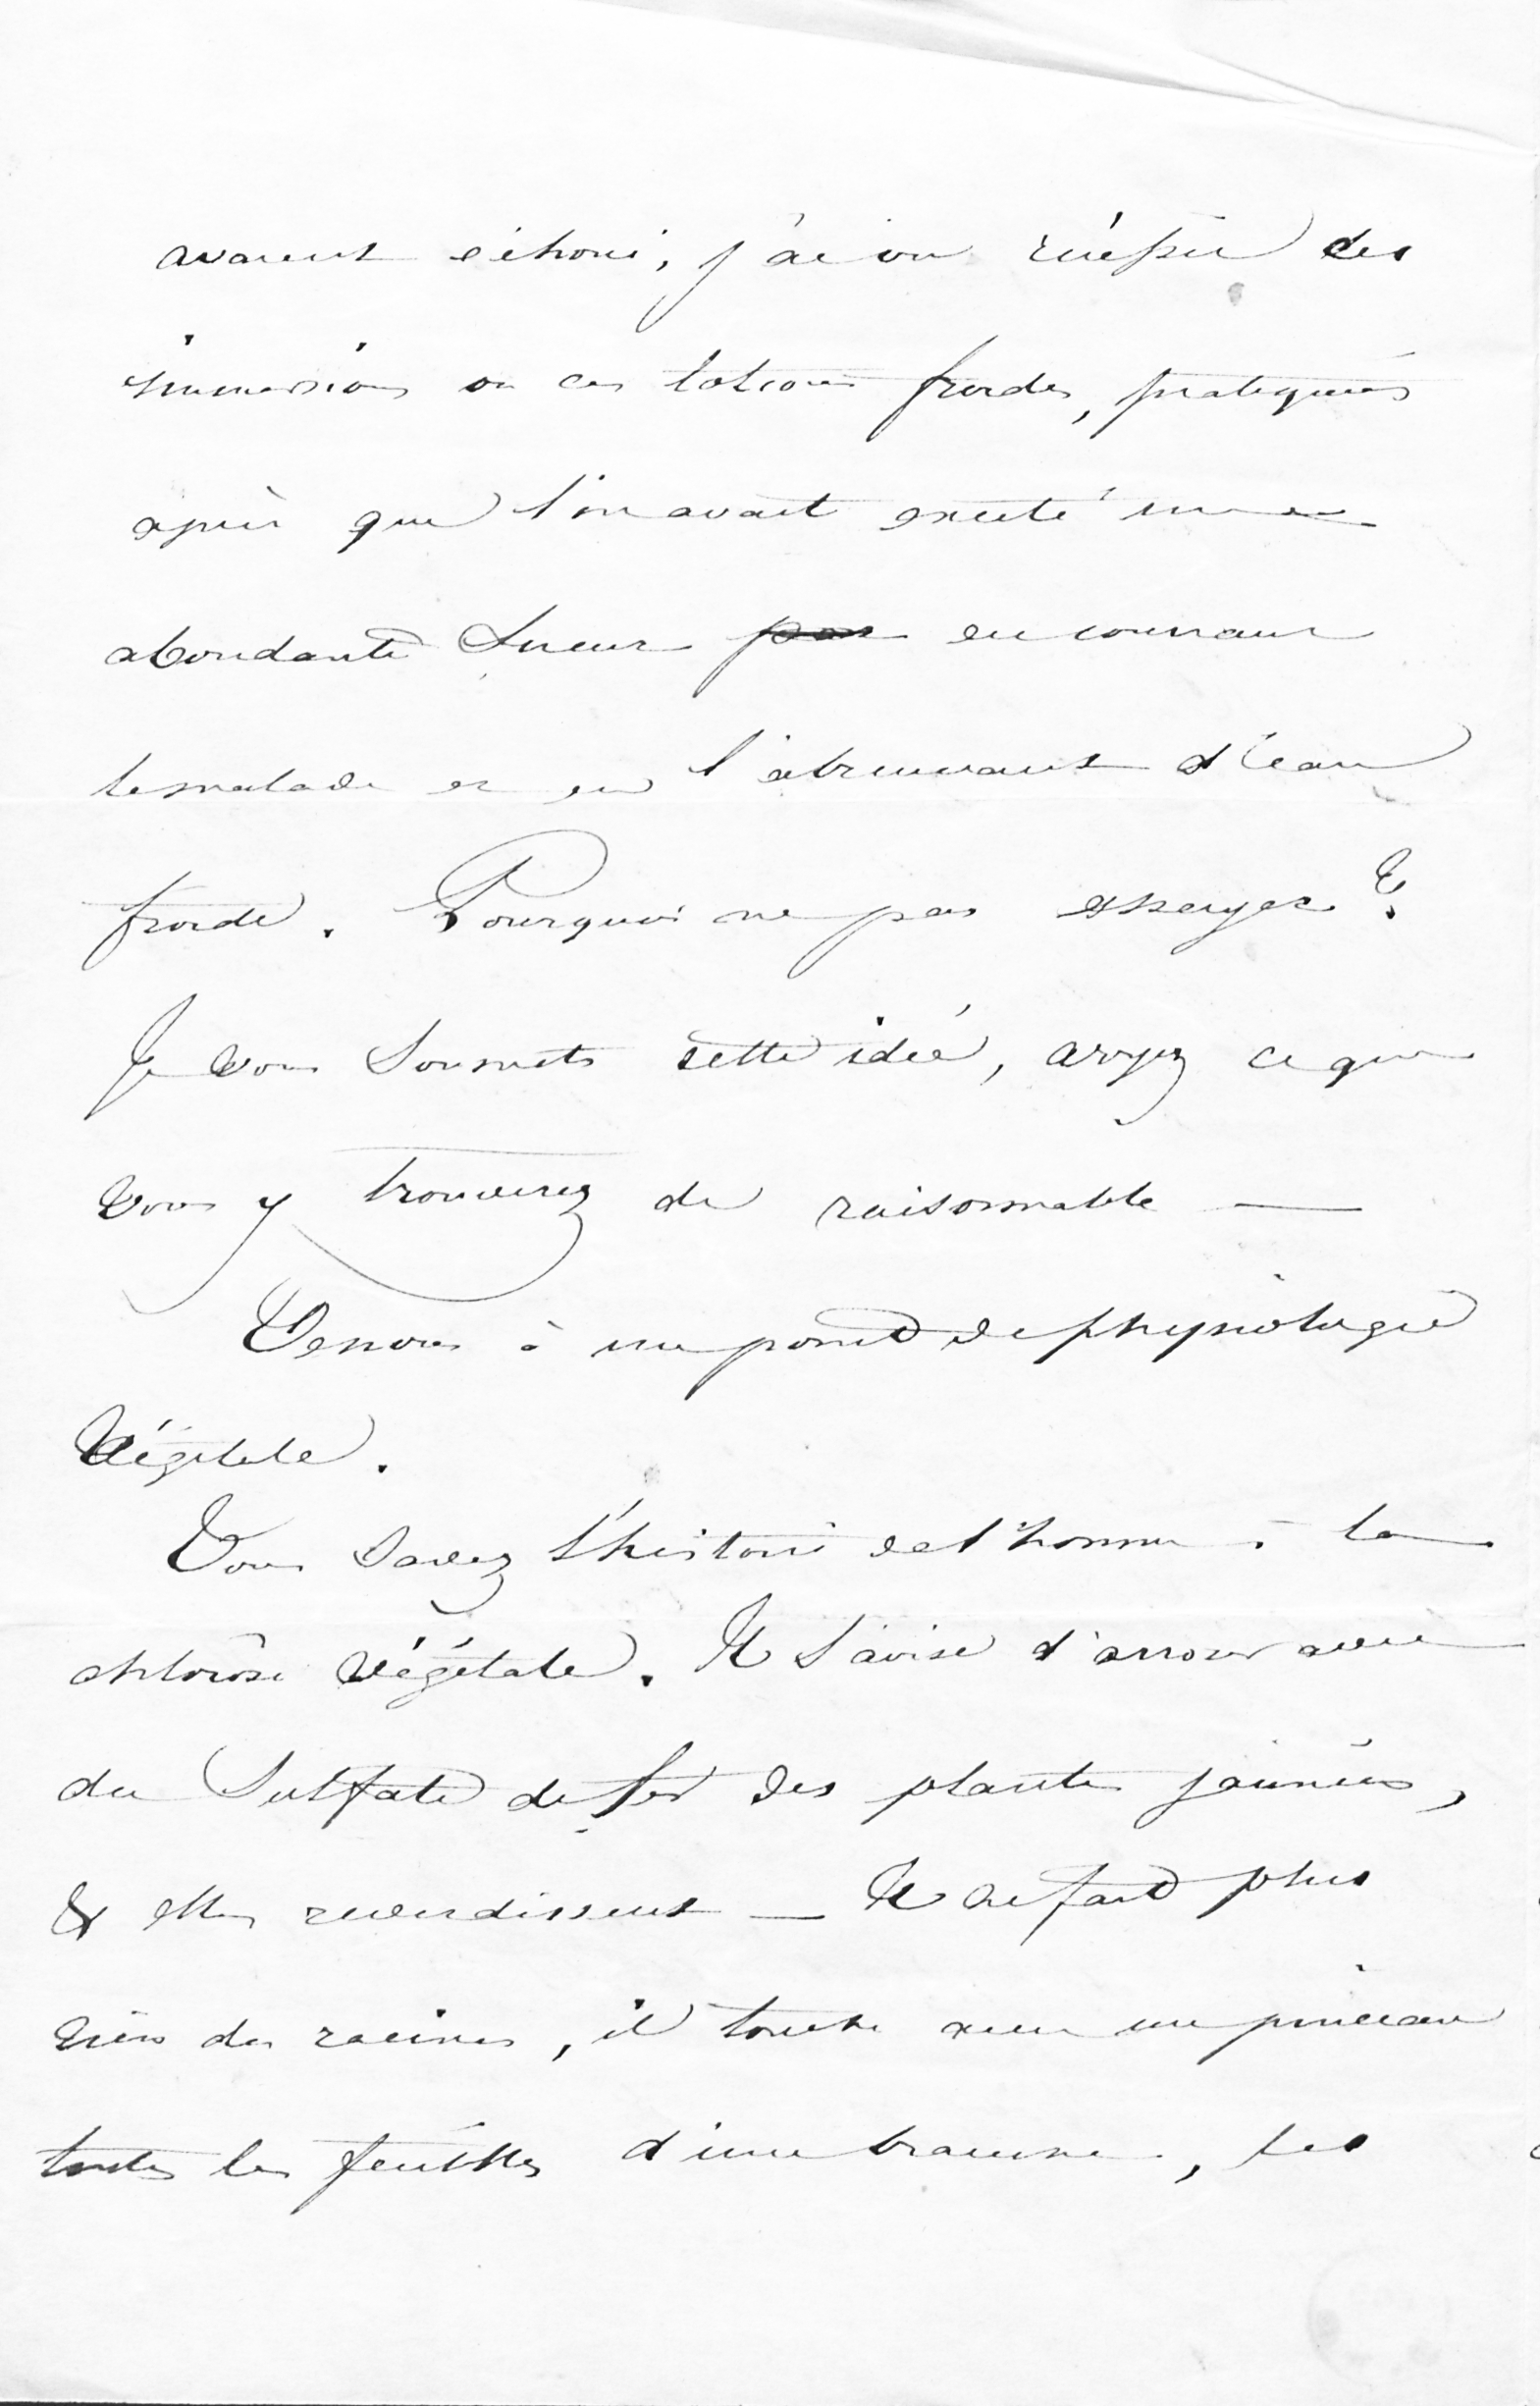 avaient échoué, j'ai vu réussir des
immersions ou des lotions froides, pratiquées
après que l'on avait excité une
abondante sueur pas en couvrant
le malade et en l'abreuvant d'eau
froide. Pourquoi ne pas essayer ?
Je vous soumets cette idée, voyez ce que
vous y trouverez de raisonnable —
Venons à un point de physiologie
végétale.
Vous savez l'histoire de l'homme à la
chlorose végétale. Il s'avise d'arroser avec
du sulfate de fer des plantes jaunies,
& elles reverdissent — Il ne fait plus
rien des racines, il touche avec un pinceau
toutes les feuilles d'une branche, les